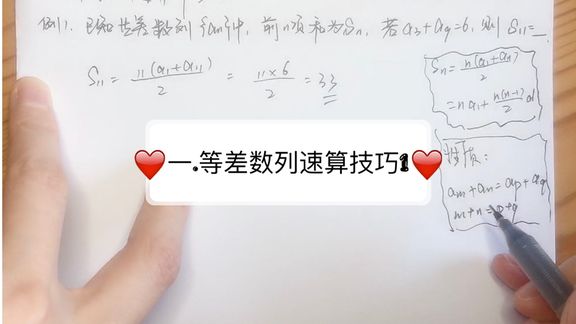 例1. 已知等差数列{an}中，前n项和为Sn，若a3+a9=6，则S11=_
S11 = 11(a1+a11)/2 = 11×6/2 = 33
Sn = n(a1+an)/2
= na1 + n(n-1)/2 d
❤️一.等差数列速算技巧1❤️
性质：
am+an=ap+aq
m+n=p+q